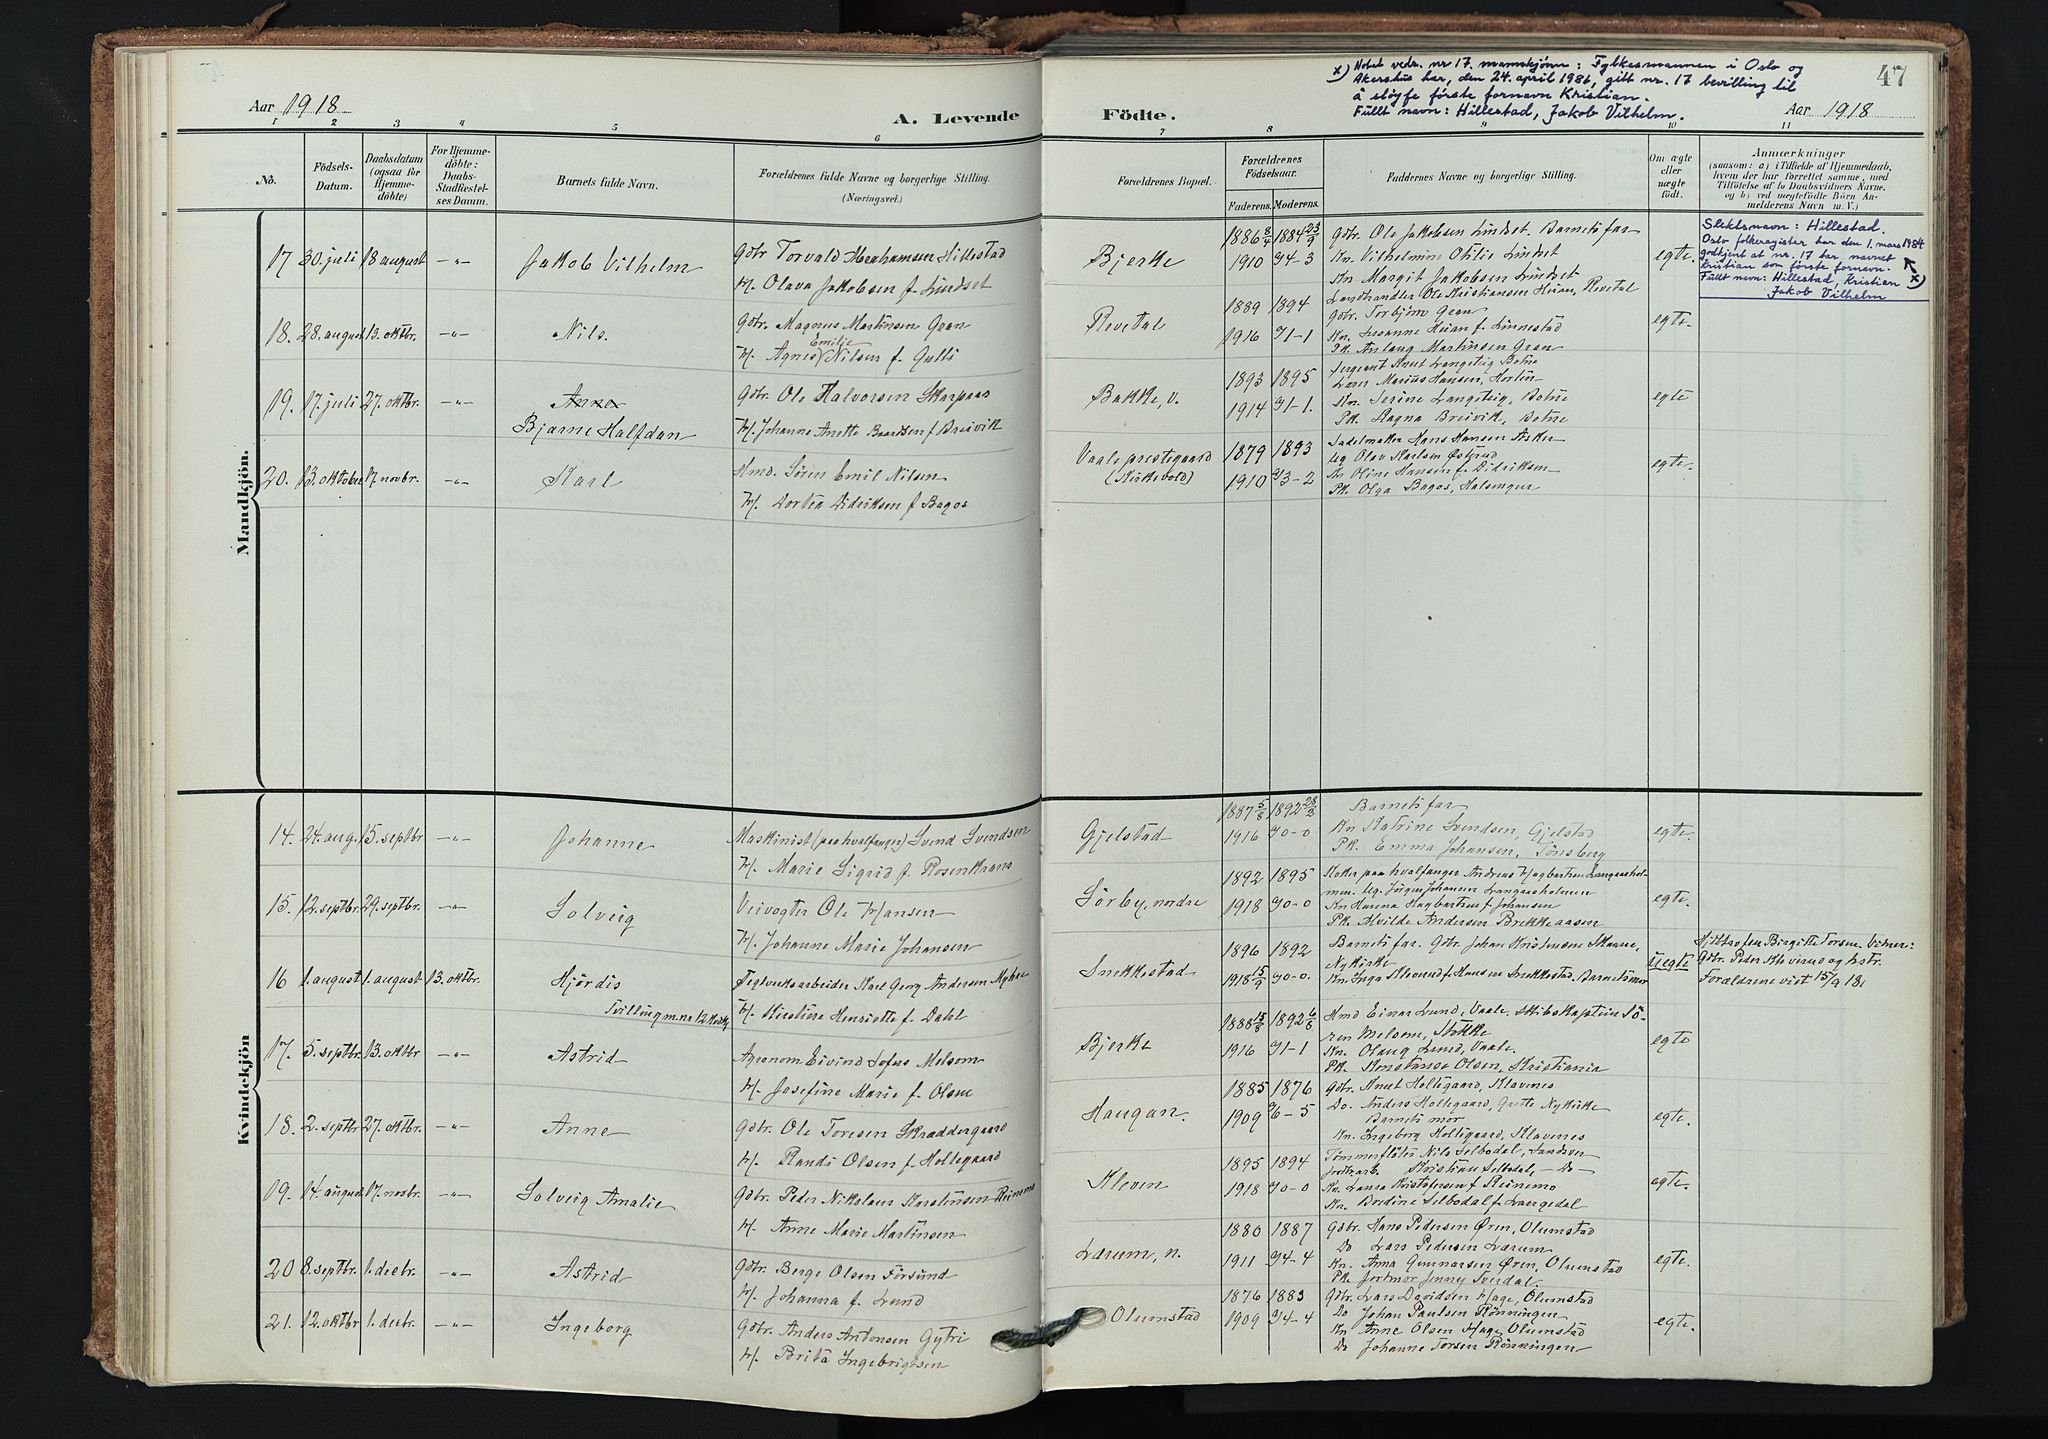 Aar 1918
A. Levende
Födte.
x) Notat vedr. nr 17. mannskjønn: Fylkesmannen i Oslo og
Akershus har, den 24. april 1986, gitt nr. 17 bevilling til
å sløyfe første fornavn Kristian.
Fullt navn: Hillestad, Jakob Vilhelm.
47
Aar 1918
1 2 3 4 5 6 7 8 9 10 11
No.
Födsels-
Datum.
Daabsdatum
(ogsaa for
Hjemme-
döbte)
For Hjemme-
döbte:
Daabs-
Stadfæstel-
ses Datum.
Barnets fulde Navn.
Forældrenes fulde Navne og borgerlige Stilling.
(Næringsvei.)
Forældrenes Bopæl.
Forældrenes
Födselsaar.
Faderens. Moderens.
Faddernes Navne og borgerlige Stilling.
Om ægte
eller
uægte
födt.
Anmærkninger
(saasom: a) i Tilfælde af Hjemmedaab,
hvem der har forrettet samme, med
Tilföielse af to Daabsvidners Navne,
og b) ved uægtefödte Börn An-
melderens Navn m. V.)
Mandkjön.
17 30. juli 18 august -"- Jakob Vilhelm
Gdbr Torvald Abrahamsen Hillestad
H/. Olava Jakobsen f. Lindset
Bjerke
1886 8/4 1884 23/9
1910 4-3
Gdbr. Ole Jakobsen Lindset. Barnets far
Kn. Vilhelmine Otilie Lindset
Kn Margit Jakobsen Lindset
egte.
Slektsnavn: Hillestad.
Oslo folkeregister har den 1. mars 1984
godkjent at nr. 17 har navnet
Kristian som første fornavn.
Fullt navn: Hillestad, Kristian x)
Jakob Vilhelm
18. 28. august 13. oktbr. -"- Nils.
Gdbr. Magnus Martinsen Gran
Emilie
H/. Agnes Nilsen f. Gulli
Revetal
1889 1894
1916 1-1
Landhandler Ole Kristiansen Huan, Revetal
Gdbr. Torbjörn Gran
Kn. Susanne Huan f. Linnestad
Pk. Aslaug Martinsen Gran
egte.
19. 17. juli 27. oktbr. -"- Anne
Bjarne Halfdan
Gdbr. Ole Halvorsen Skarpaas
H/. Johanne Anette Baardsen f. Breivik
Bakke, v.
1893 1895
1914 1-1.
Sergeant Knut Langeteig Botne
Lærer Marius Hansen, Horten
Kn. Serine Langeteig, Botne
Pk. Magna Breivik, Botne
egte
20. 13. oktober 17. novbr. -"- Karl
Hmd. Sören Emil Nilsen
H/. Dortea Didriksen f. Bagos
Vaale prestegaard
(Kirkevold)
1879 1893
1910 3-2
Sadelmaker Hans Hansen Asker
Ug Olav Karlsen Östrud
Kn Oline Hansen f. Didriksen
Pk. Olga Bagos, Helsingör
egte.
Kvindekjön
14. 24. aug. 15. septbr -"- Johanne
Maskinist (paa hvalfanger) Svend Svendsen
H/. Marie Sigrid f. Rosenkrans
Gjelstad
1887 5/8 1892 28/2
1916 0-0
Barnets far
Kn Katrine Svendsen, Gjelstad
Pk. Emma Johansen, Tönsberg
egte.
15. 12. septbr. 29. septbr. -"- Solveig
Veivogter Ole Hansen
H/. Johanne Marie Johansen
Sörby, nordre
1892 1895
1918 0-0
Koker paa hvalfanger Andreas Hagbartsen Langaashol-
men. Ug. Jörgen Johansen Langaasholmen
Kn Hanna Hagbartsen f. Johansen
Pk. Hvilde Andersen Brekkeaasen
egte.
16 1. august 1. august 13. oktbr. Hjördis
Tvilling m. nr 12 Mdkj
Teglverksarbeider Karl Georg Andersen Myhre
H/. Kirstine Henriette f. Dahl
Snekkestad
1896 1892
1918 15/9 0-0.
Barnets far. Gdbr. Johan Kristiansen Skaane,
Nykirke
Kn. Inga Kleverud f. Hansen Snekkestad, Barnets mor
Uegte
Hjittrofen Birgitte Torsen. Vidner:
Gdbr. Peder Kleverud og hstr.
Forældrene viet 15/9 18.
17. 5. septbr. 13. oktbr -"- Astrid
Agronom Eivind Sofus Melsom
H/. Josefine Marie f. Olsen
Bjerke
1888 15/8 1892 6/8
1916 1-1
Hmd Einar Lund, Vaale. Skibskaptein Sö-
ren Melsom, Stokke
Kn. Olaug Lund, Vaale.
Pk. Konstanse Olsen, Kristiania
egte
18. 2. septbr 27. oktbr. -"- Anne
Gdbr. Ole Toresen Skraddergaard
H/. Randi Olsen f. Holtegaard
Haugan.
1885 1876
1909 6-5
Gdbr. Knut Holtegaard, Klavenes
Do. Anders Holtegaard, Nykirke
Barnets mor
Kn. Ingeborg Holtegaard, Klavenes
egte.
19. 14. august 17. novbr. -"- Solveig Amalie
Gdbr. Peder Nikolaus Karstensen Reinemo
H/. Anne Marie Martinsen
Kleven
1895 1894
1918 0-0
Tömmerflöter Nils Selbodal, Sandsvær
Jordbrarb. Kristian Selbodal, - Do -
Kn. Laura Kristofersen f. Reinemo
Kn. Bredine Selbodal f. Langedal
egte.
20 8. septbr. 1. decbr. -"- Astrid
Gdbr. Berge Olsen Försund
H/. Johanna f. Lund
Lærum, n.
1880 1887
1911 4-4
Gdbr. Hans Pedersen Ören, Olumstad
Do Lars Pedersen Lærum
Kn. Anna Gunnarsen Ören, Olumstad
Pk. Jordmor Jenny Tverdal.
egte.
21. 12. oktbr 1. decbr. -"- Ingeborg
Gdbr. Anders Antonsen Gytri
H/. Brita Ingebrigtsen
Olumstad
1876 1883
1909 4-4
Gdbr. Lars Davidsen Hage, Olumstad
Do Johan Paulsen Rönningen
Kn Anne Olsen Hage Olumstad
Do Johanne Torsen Rönningen
egte.